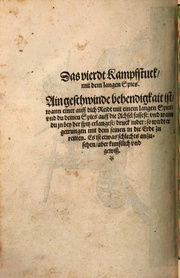 Das vierdt Kampfstuck/
mit dem langen Spies.
Ain geschwinde behendigkait ist/
wann einer auff dich Reidt mit einem langen Spies/
und du deinen Spies auff die Achsel fassest: und wann
du jn bey der erlangest/ druck nider: so wirdt er
getrungen mit dem seinen in die Erdt zu
rennen. Es ist etwas schlechts anzu-
sehen/ aber kunstlich und
gewiß.